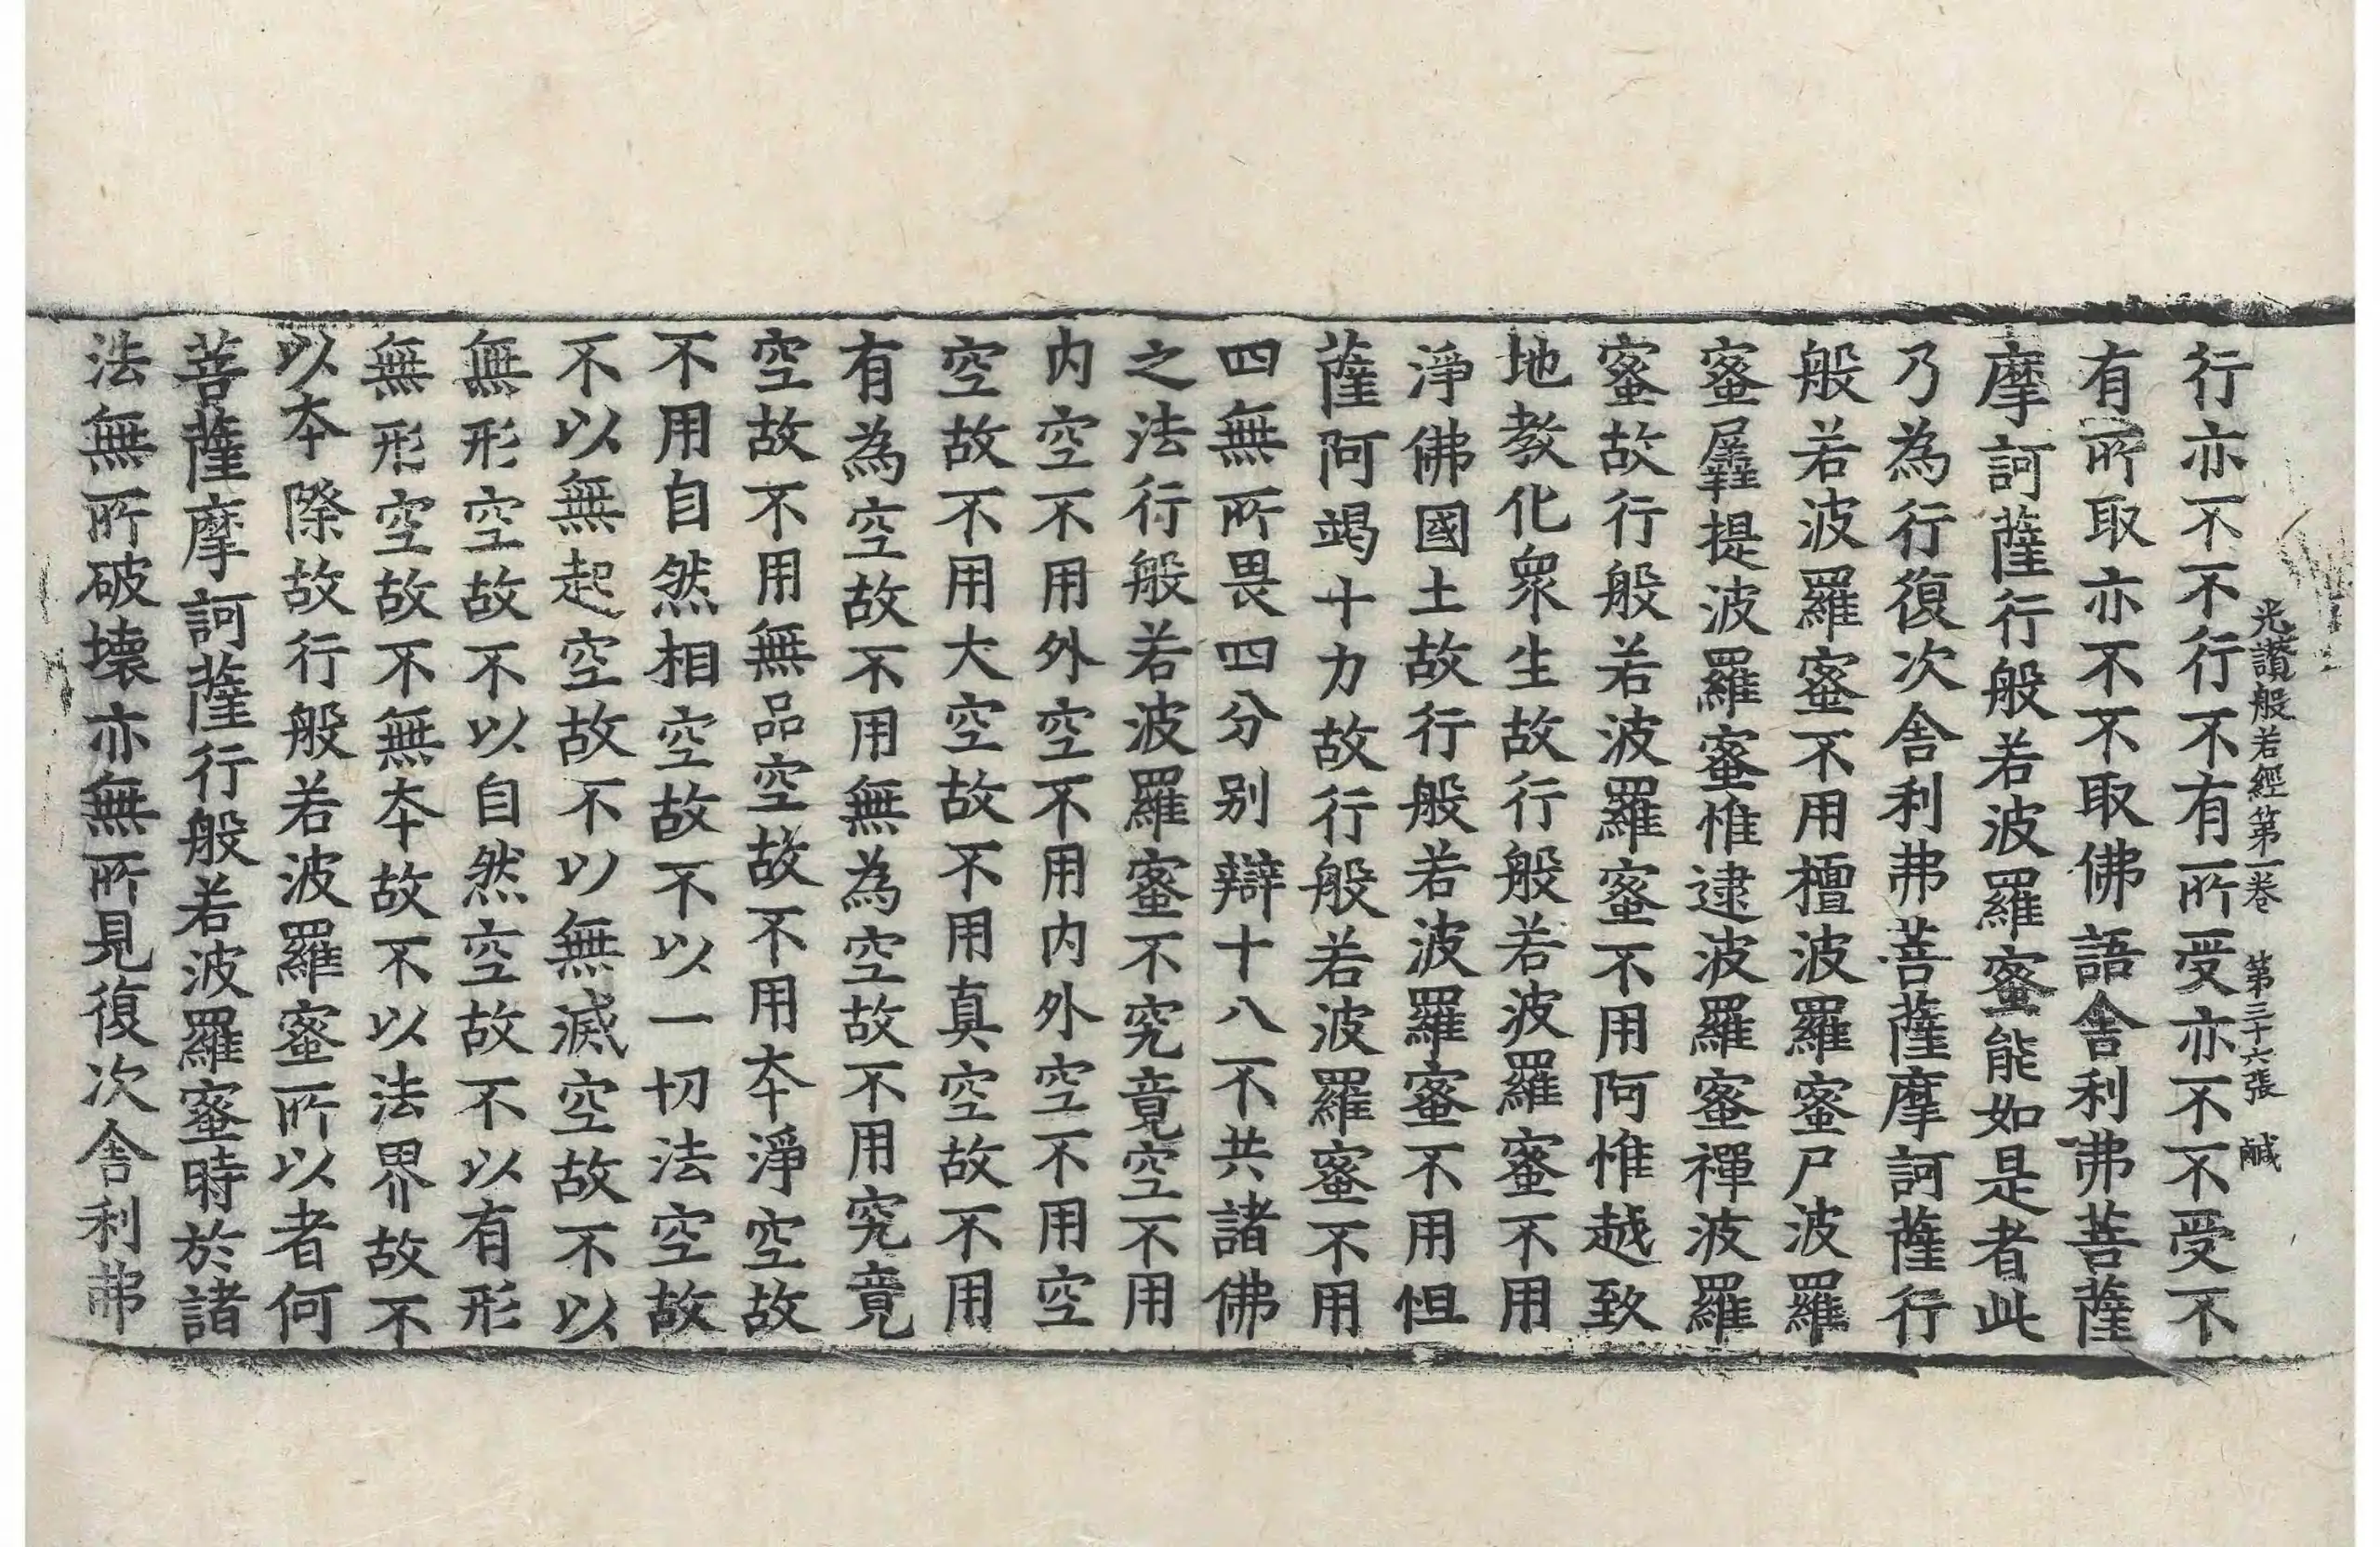 光讚般若經第一卷 第三十六張 鹹
行亦不不行不有所受亦不不受不
有所取亦不不取佛語舎利弗菩薩
摩訶薩行般若波羅蜜能如是者此
乃為行復次舎利弗菩薩摩訶薩行
般若波羅蜜不用檀波羅蜜尸波羅
蜜羼提波羅蜜惟逮波羅蜜禪波羅
蜜故行般若波羅蜜不用阿惟越致
地教化衆生故行般若波羅蜜不用
淨佛國土故行般若波羅蜜不用怛
薩阿竭十力故行般若波羅蜜不用
四無所畏四分別辯十八不共諸佛
之法行般若波羅蜜不究竟空不用
内空不用外空不用内外空不用空
空故不用大空故不用真空故不用
有為空故不用無為空故不用究竟
空故不用無品空故不用夲淨空故
不用自然相空故不以一切法空故
不以無起空故不以無滅空故不以
無形空故不以自然空故不以有形
無形空故不無夲故不以法界故不
以夲際故行般若波羅蜜所以者何
菩薩摩訶薩行般若波羅蜜時於諸
法無所破壊亦無所見復次舎利弗